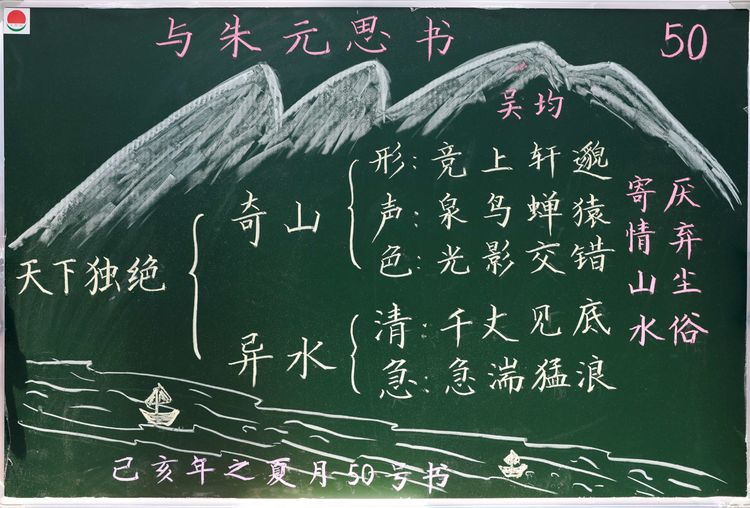 与朱元思书
50
吴均
天下独绝
奇山
形：竞上轩邈
声：泉鸟蝉猿
色：光影交错
异水
清：千丈见底
急：急湍猛浪
厌弃尘俗
寄情山水
己亥年之夏月50号书